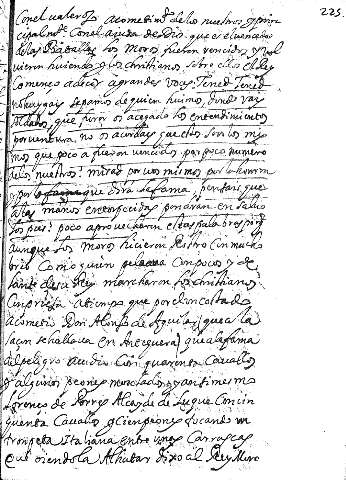 225.
Con el valeroso acometimº de los nuestros y prin
cipalmᵗᵉ Con el ajuda de dios. que es el vencedor
de las Batallas los Moros fueron vencidos y vol
vieron huiendo y los christianos sobre ellos el Rey
Començo a decir a grandes voces. Tened Tened
no huygays sepamos de quien huimos, donde vays
soldados, que furor os a cegado los entendimientos
por ventura, no os acordays que estos son los mis
mos que poco a fueron vencidos por poco numero
de los nuestros? mirad por vos mismos por la honrra
y por la fama que dira la fama, pensays que
a las manos entorpecidas pondran en salvo
los pies? poco aprovecharon estas palabras porq
aunque los Moros hicieron Rostro
Como quien con pocos y de
lante de su Rey marcharon los christianos
Con priesa a tiempo que por el un costado
acometio Don Alonso de Aguilar (que a la
saçon se hallava en Antequera) que a la fama
del peligro acudio Con quarenta Cavallos
y algunos peones y ansi mesmo
Lorenço de Porres Alcayde de Luque Con cin
quenta Cavallos y cien peones tocando una
trompeta Italiana entre unos Carrascos
que oiendola Alhatar dixo al Rey Moro